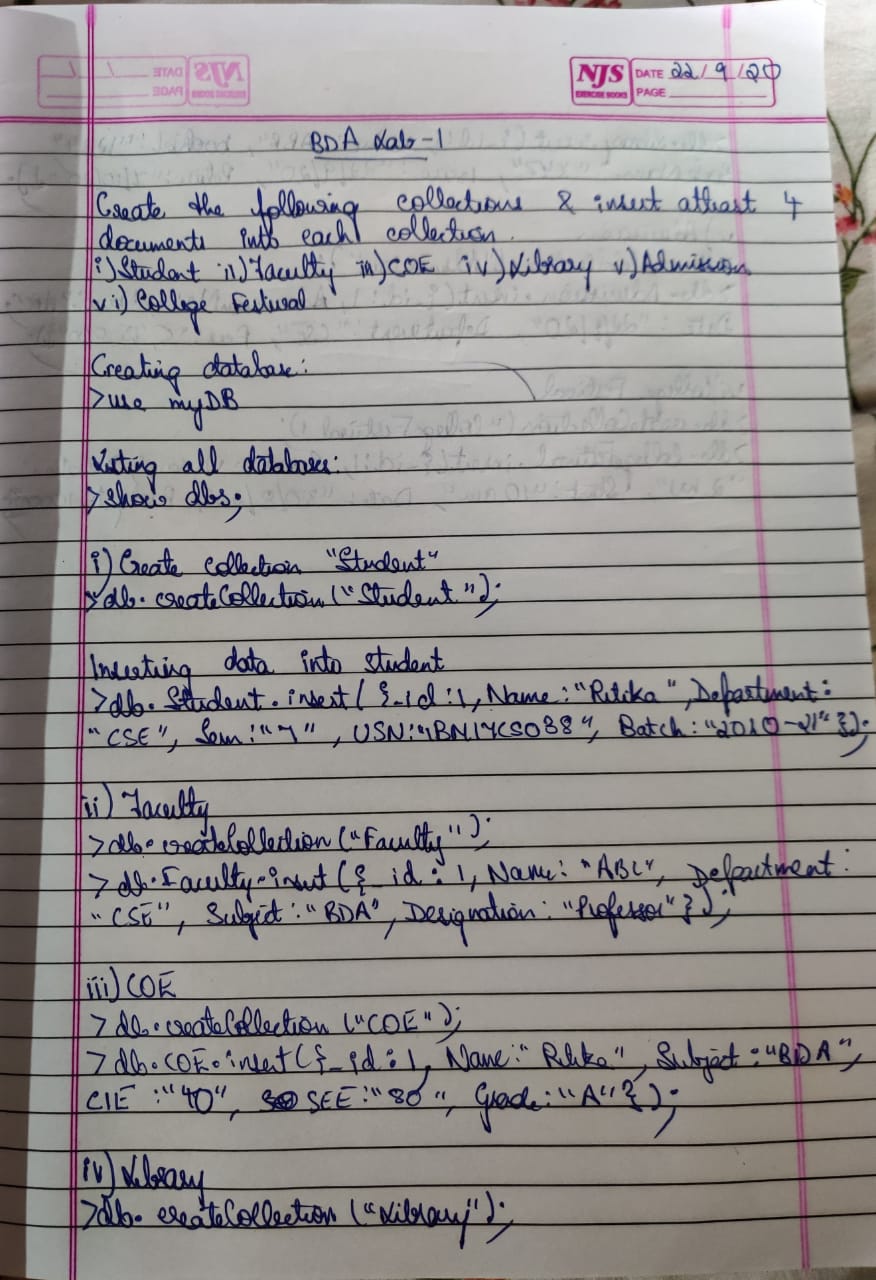 NJS
EXERCISE BOOKS
DATE 22/9/20
PAGE
BDA Lab-1
Create the following collections & insert atleast 4
documents into each collection.
i) Student ii) Faculty iii) COE iv) Library v) Admission
vi) College Festival
Creating database:
>use myDB
Listing all databases:
>show dbs;
i) Create collection "Student"
>db.createCollection("Student");
Inserting data into student
>db.Student.insert({_id:1, Name:"Ritika", Department:
"CSE", Sem:"7", USN:"1BN17CS088", Batch:"2020-21"});
ii) Faculty
>db.createCollection("Faculty");
>db.Faculty.insert({_id:1, Name:"ABC", Department:
"CSE", Subject:"BDA", Designation:"Professor"});
iii) COE
>db.createCollection("COE");
>db.COE.insert({_id:1, Name:"Ritika", Subject:"BDA",
CIE:"40", SEE:"80", Grade:"A"});
iv) Library
>db.createCollection("Library");